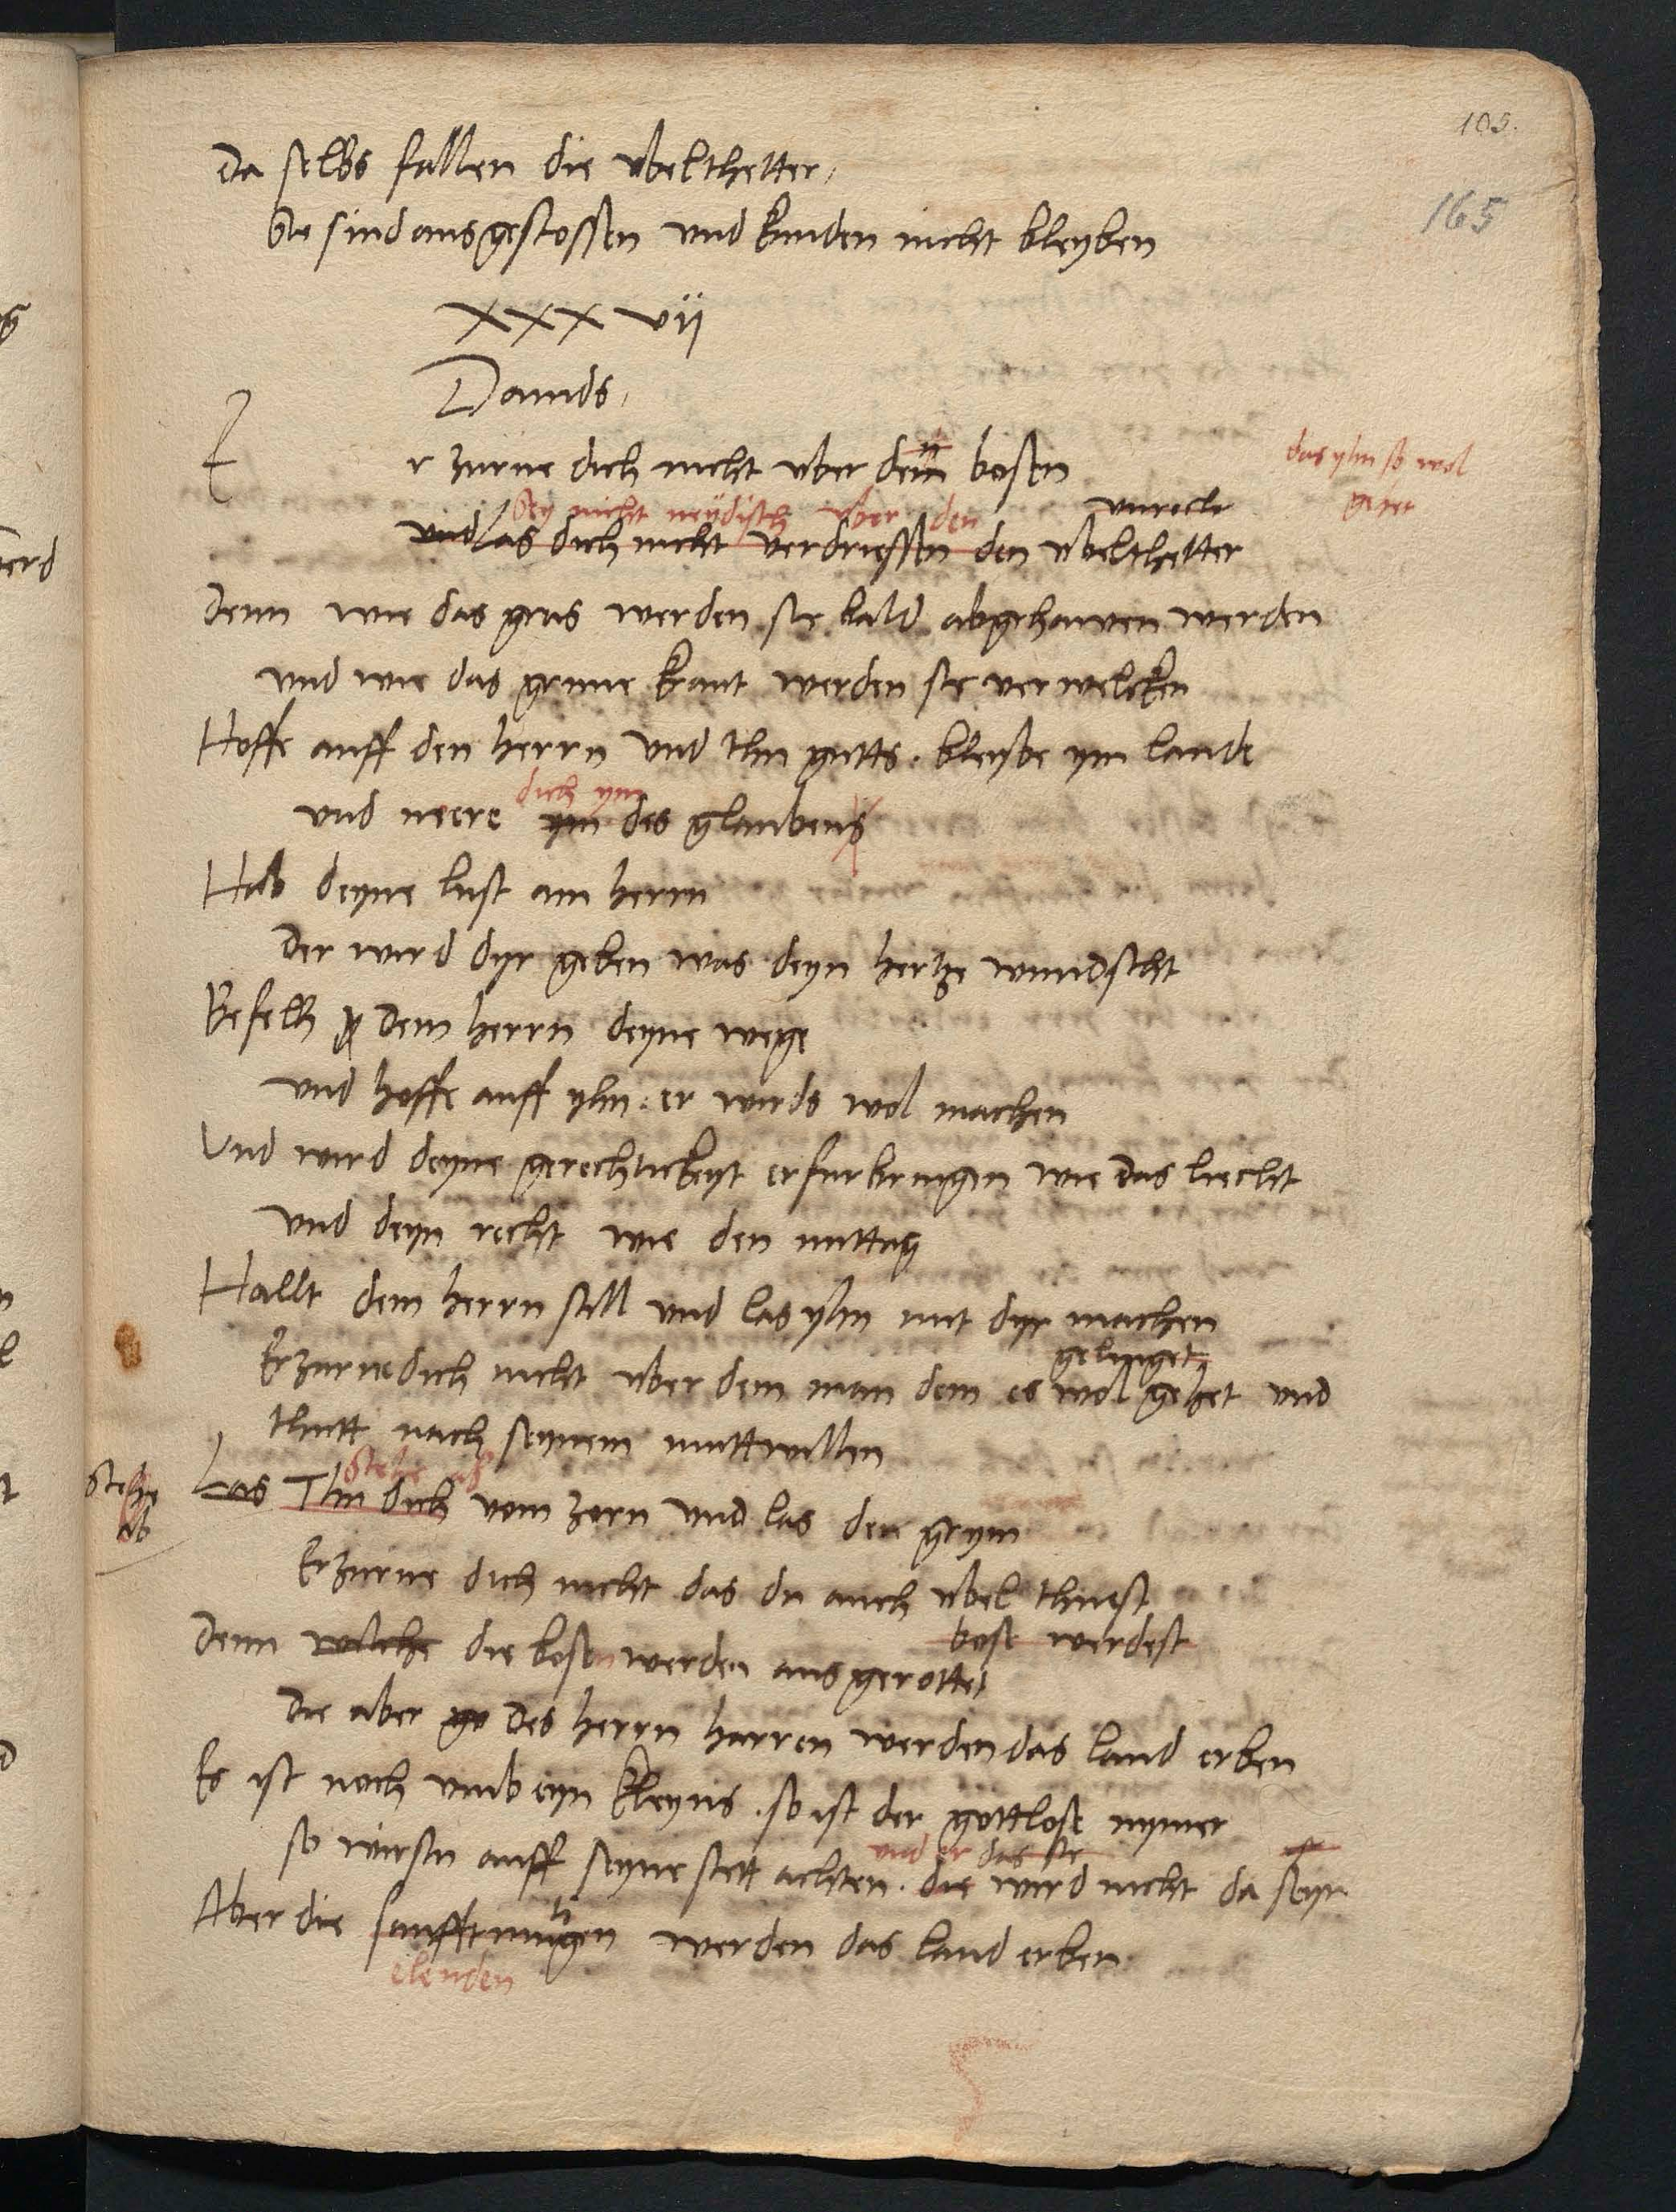 105.
165
Da selbs fallen die ubelthetter,
Sie sind ausgestossen und kunden nicht bleyben
XXXvij
Dauids,
E
r zurne dich nicht uber den bosen
das yhn so wol
gehet
Sey nicht neydisch uber den
unrecht
und las dich nicht verdriessen den ubelthetter
Denn wie das gras werden sie bald abgehawen werden
und wie das grune kraut werden sie verwelcken
Hoffe auff den herrn und thu gutts. bleybe ym lande
dich ym
und neere ym des glaubens
Hab deyne lust am herrn
Der wird dyr geben was deyn hertze wundscht
Befelh dem herrn deyne wege
und hoffe auff yhn. er wirds wol machen
Und wird deyne gerechtickeyt erfur bringen wie das liecht
und deyn recht wie den mittag
Hallt dem herrn still und las yhn mit dyr machen
gelinget
Erzurne dich nicht uber dem man dem es wol gehet und
thutt nach seynem muttwillen
stehe
ab
stehe ab
Las Thu dich vom zorn und las den grym
Erzurne dich nicht das du auch ubel thuest
bose werdest
Denn welche die bosen werden ausgerottet
Die aber des herrn harren werden das land erben
Es ist noch umb eyn kleyns. so ist der gottlose nymer
und er das sie
so wirstu auff seyne stett achten. die wird nicht da seyn
Aber die sanfftmutigen werden das land erben
elenden